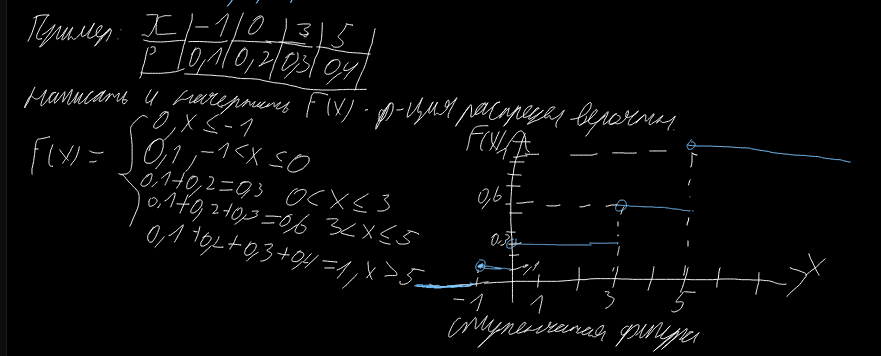 Пример: X | -1 | 0 | 3 | 5
P | 0,1 | 0,2 | 0,3 | 0,4
Написать и начертить F(X) - ф-ция распредел вероятн.
F(X) = { 0, x ≤ -1
0,1, -1 < x ≤ 0
0,1+0,2=0,3 0 < x ≤ 3
0,1+0,2+0,3=0,6 3 < x ≤ 5
0,1+0,2+0,3+0,4=1, x > 5
F(X)
1
0,6
0,3
0,1
-1 1 3 5 X
ступенчатая фигура